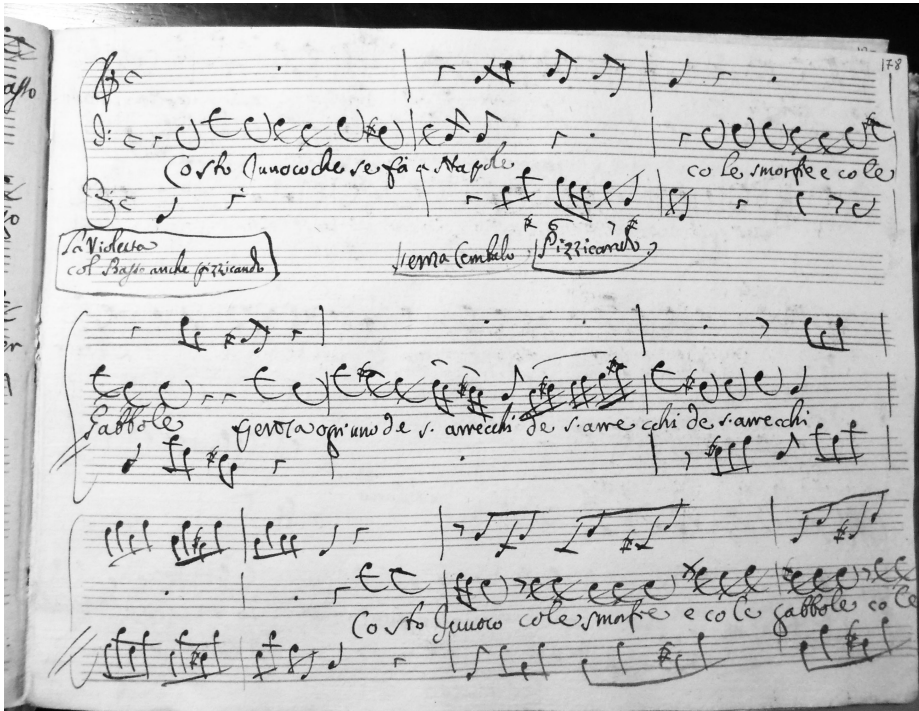 178
Co sto Juoco che se fà a Napole co le smorfie e co le
La Violetta
col Basso anche pizzicando
senza Cembalo Pizzicando
gabbole ogn'uno de s'arrecchi de s'arre cchi de s'arrecchi
Co sto Juoco co le smorfie e co le gabbole co le